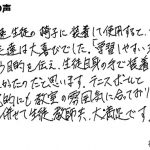 の声
生徒の椅子に装着して使用すると、
達は大喜びでした。「学習しやすい
目的を伝え、生徒自身の手で装着
よかったのだと思います。テニスボールと
的にも教室の雰囲気に合っており
併せて生徒、教師共、大満足です。